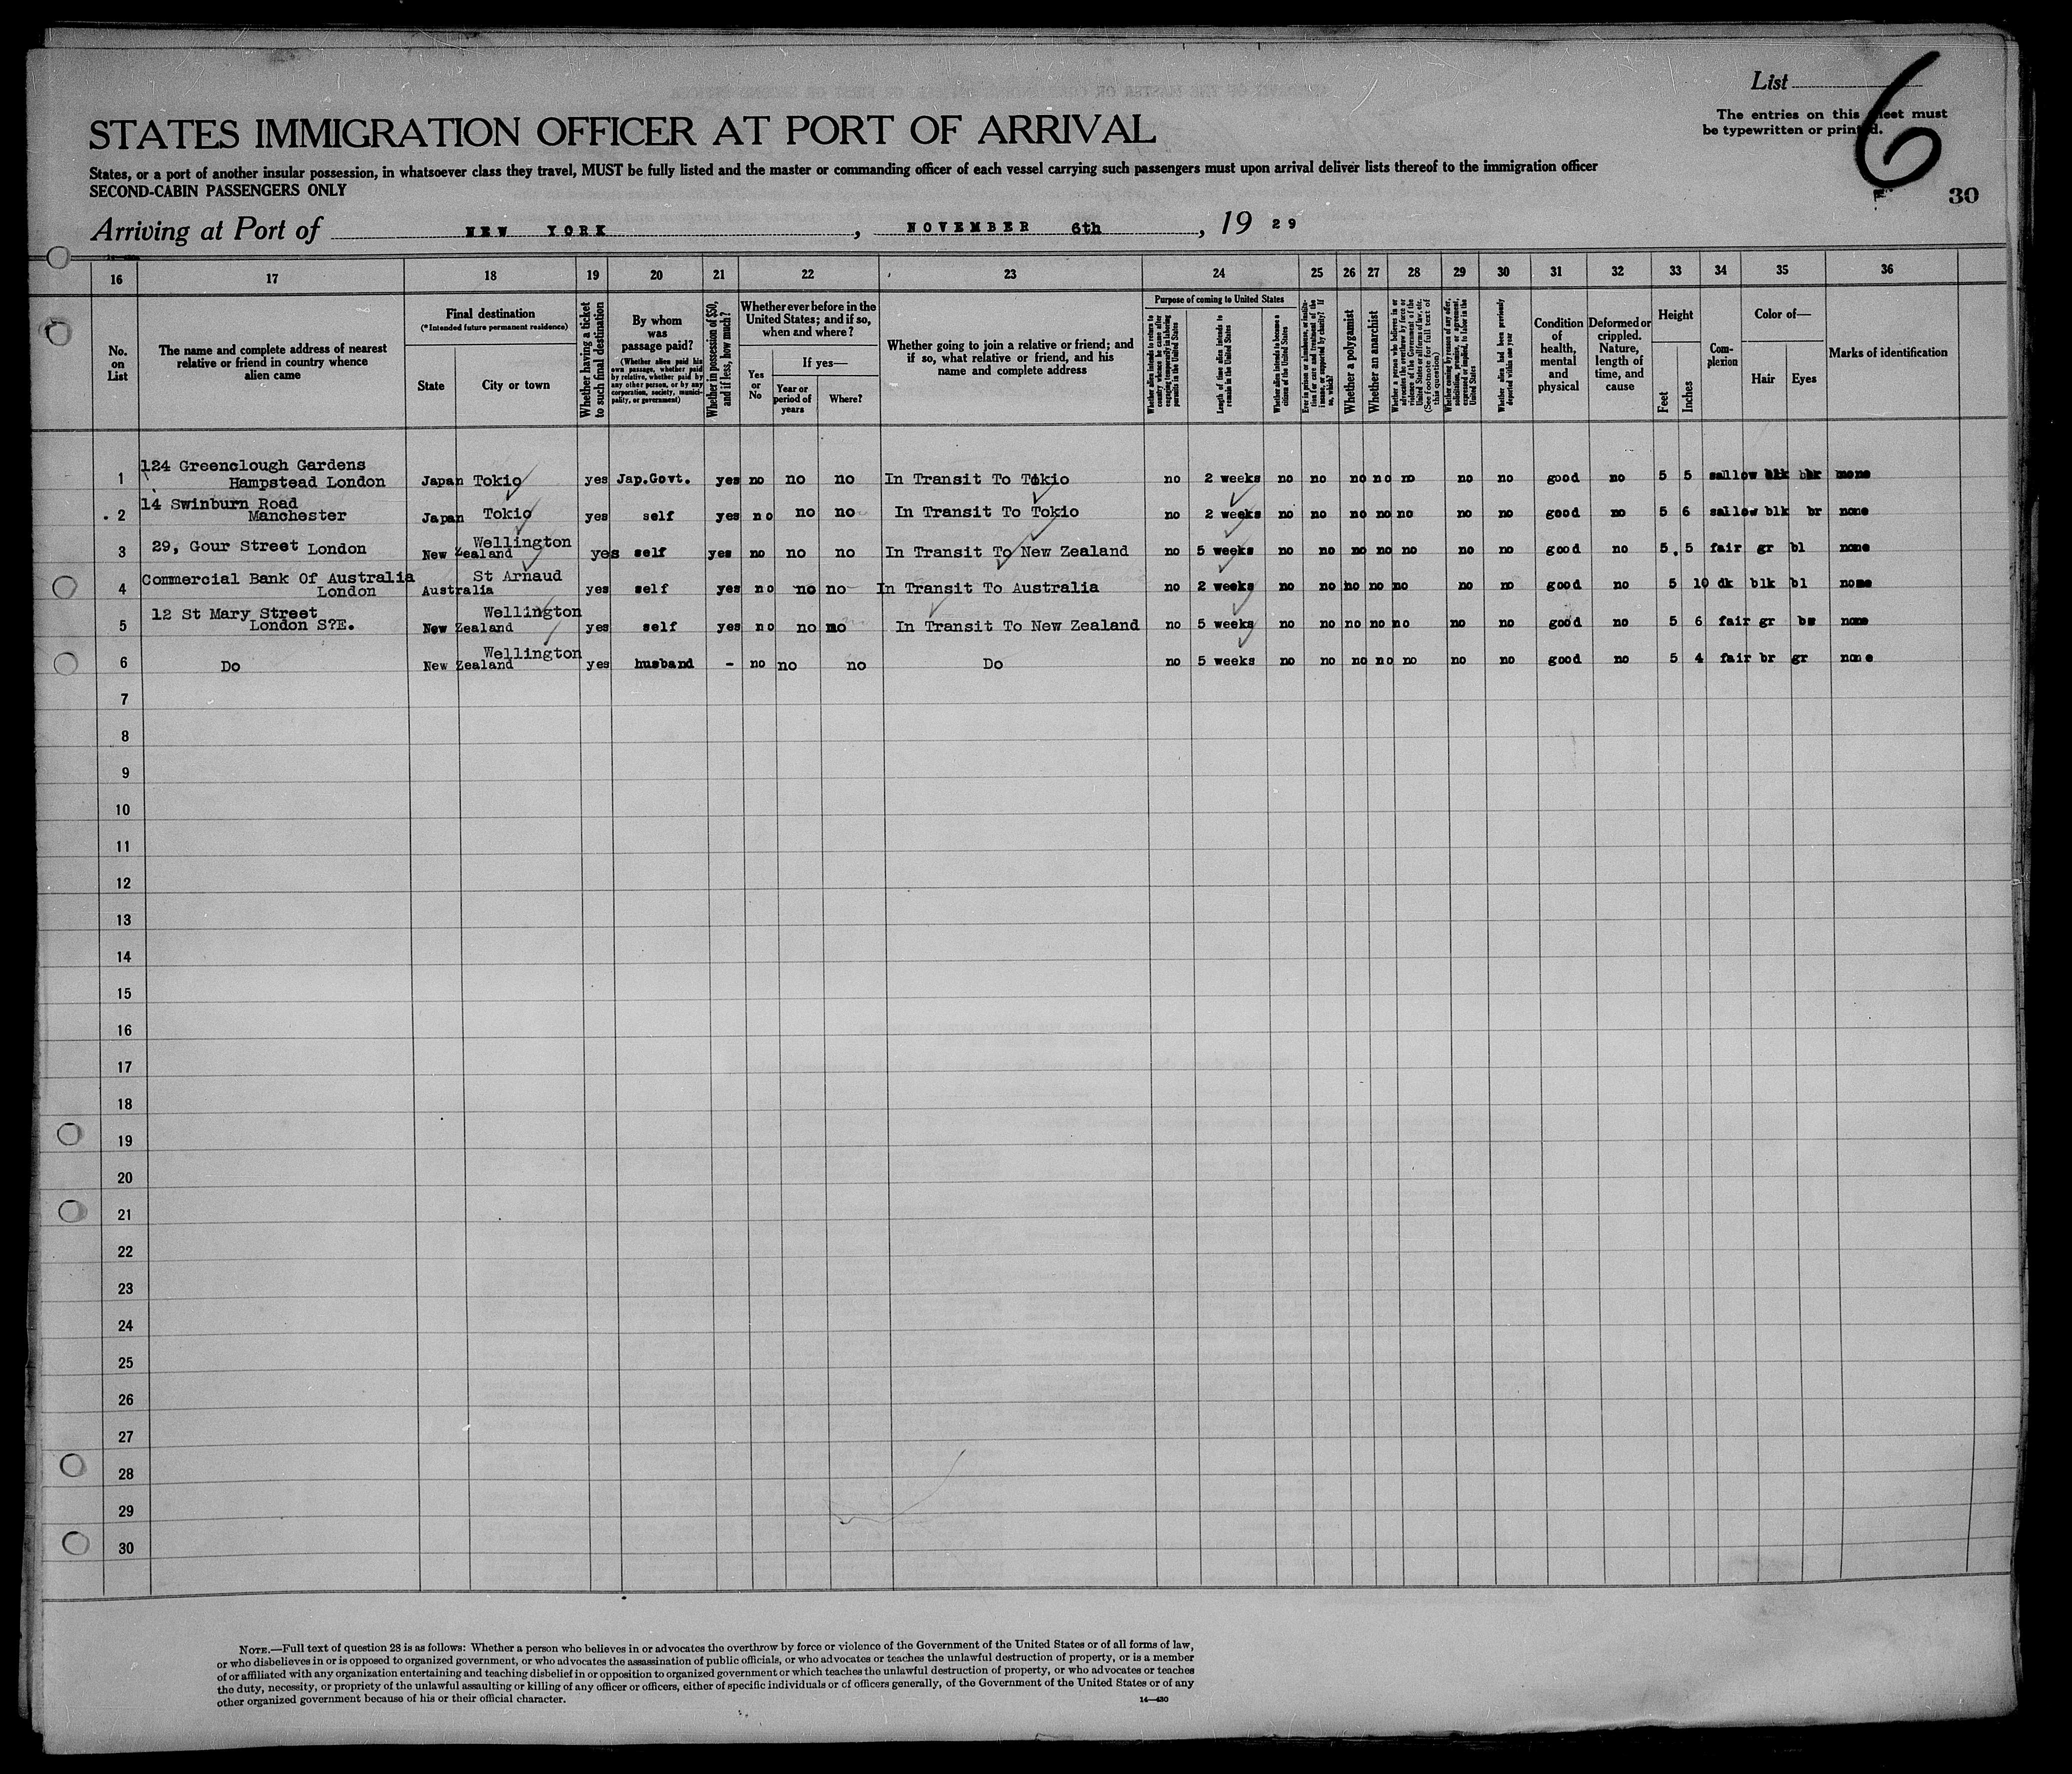 List 6
The entries on this sheet must
be typewritten or printed.
STATES IMMIGRATION OFFICER AT PORT OF ARRIVAL
States, or a port of another insular possession, in whatsoever class they travel, MUST be fully listed and the master or commanding officer of each vessel carrying such passengers must upon arrival deliver lists thereof to the immigration officer
SECOND-CABIN PASSENGERS ONLY
30
Arriving at Port of NEW YORK, NOVEMBER 6th, 19 29
16 17 18 19 20 21 22 23 24 25 26 27 28 29 30 31 32 33 34 35 36
No. on List
The name and complete address of nearest relative or friend in country whence alien came
Final destination
(*Intended future permanent residence)
State
City or town
Whether having a ticket to such final destination
By whom was passage paid?
(Whether alien paid his own passage, whether paid by relative, whether paid by any other person, or by any corporation, society, municipality, or government)
Whether in possession of $50, and if less, how much?
Whether ever before in the United States; and if so, when and where?
Yes or No
If yes—
Year or period of years
Where?
Whether going to join a relative or friend; and if so, what relative or friend, and his name and complete address
Purpose of coming to United States
Whether alien intends to return to country whence he came after engaging temporarily in laboring pursuits in the United States
Length of time alien intends to remain in the United States
Whether alien intends to become a citizen of the United States
Ever in prison or almshouse, or institution for care and treatment of the insane, or supported by charity? If so, which?
Whether a polygamist
Whether an anarchist
Whether a person who believes in or advocates the overthrow by force or violence of the Government of the United States or all forms of law, etc. (See footnote for full text of this question)
Whether coming by reason of any offer, solicitation, promise, or agreement, expressed or implied, to labor in the United States
Whether alien had been previously deported within one year
Condition of health, mental and physical
Deformed or crippled. Nature, length of time, and cause
Height
Feet
Inches
Complexion
Color of—
Hair
Eyes
Marks of identification
1 124 Greenclough Gardens Hampstead London Japan Tokio yes Jap.Govt. yes no no no In Transit To Tokio no 2 weeks no no no no no no no good no 5 5 sallow blk br none
2 14 Swinburn Road Manchester Japan Tokio yes self yes no no no In Transit To Tokio no 2 weeks no no no no no no no good no 5 6 sallow blk br none
3 29, Gour Street London New Zealand Wellington yes self yes no no no In Transit To New Zealand no 5 weeks no no no no no no no good no 5.5 fair gr bl none
4 Commercial Bank Of Australia London Australia St Arnaud yes self yes no no no In Transit To Australia no 2 weeks no no no no no no no good no 5 10 dk blk bl none
5 12 St Mary Street London S?E. New Zealand Wellington yes self yes no no no In Transit To New Zealand no 5 weeks no no no no no no no good no 5 6 fair gr none
6 Do New Zealand Wellington yes husband - no no no Do no 5 weeks no no no no no no no good no 5 4 fair br gr none
7
8
9
10
11
12
13
14
15
16
17
18
19
20
21
22
23
24
25
26
27
28
29
30
NOTE.—Full text of question 28 is as follows: Whether a person who believes in or advocates the overthrow by force or violence of the Government of the United States or of all forms of law,
or who disbelieves in or is opposed to organized government, or who advocates the assassination of public officials, or who advocates or teaches the unlawful destruction of property, or is a member
of or affiliated with any organization entertaining and teaching disbelief in or opposition to organized government or which teaches the unlawful destruction of property, or who advocates or teaches
the duty, necessity, or propriety of the unlawful assaulting or killing of any officer or officers, either of specific individuals or of officers generally, of the Government of the United States or of any
other organized government because of his or their official character.
14—430